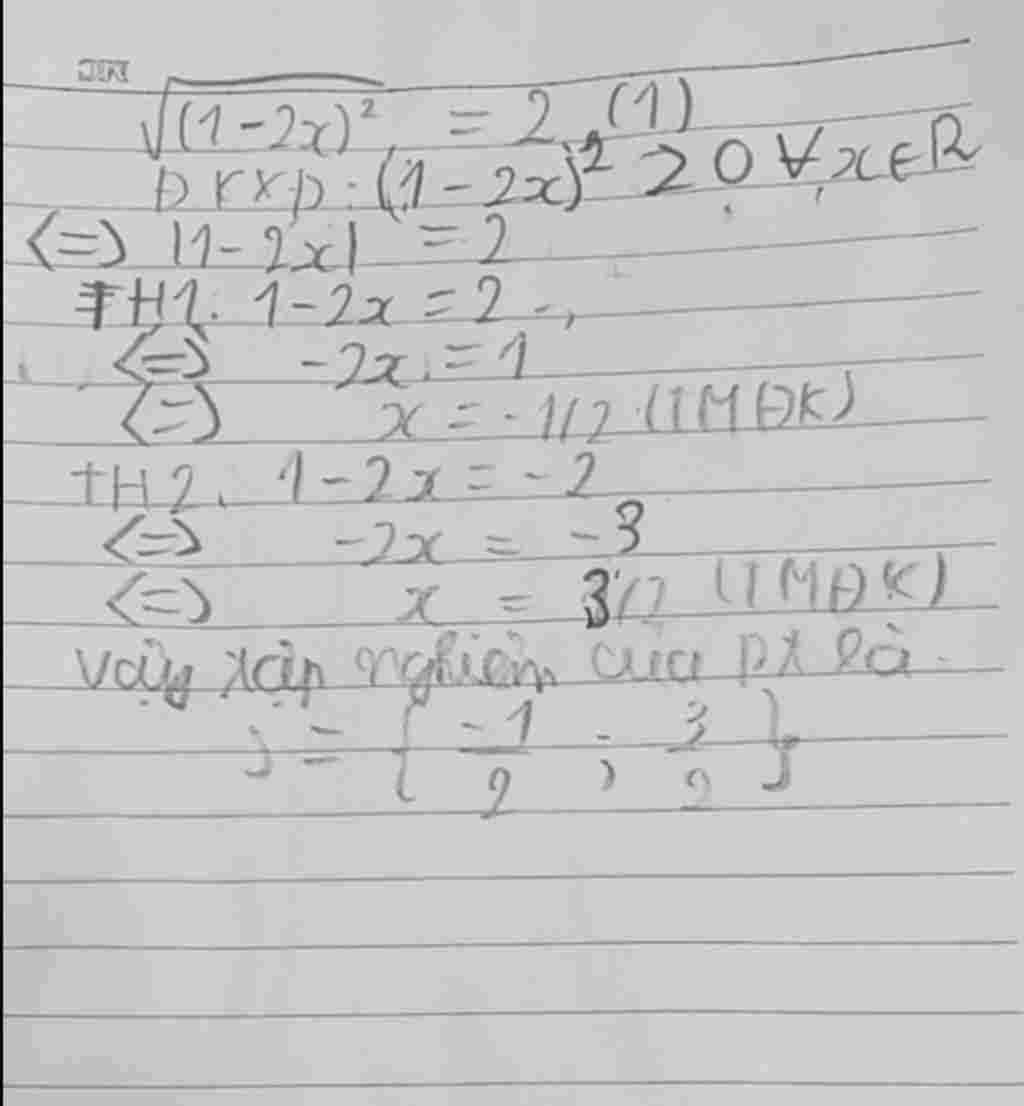 √(1-2x)² = 2 (1)
ĐKXĐ: (1-2x)² ≥ 0 ∀ x∈R
<=> |1-2x| = 2
TH1: 1-2x = 2
<=> -2x = 1
<=> x = -1/2 (TMĐK)
TH2. 1-2x = -2
<=> -2x = -3
<=> x = 3/2 (TMĐK)
Vậy tập nghiệm của pt là
S = { -1/2 ; 3/2 }